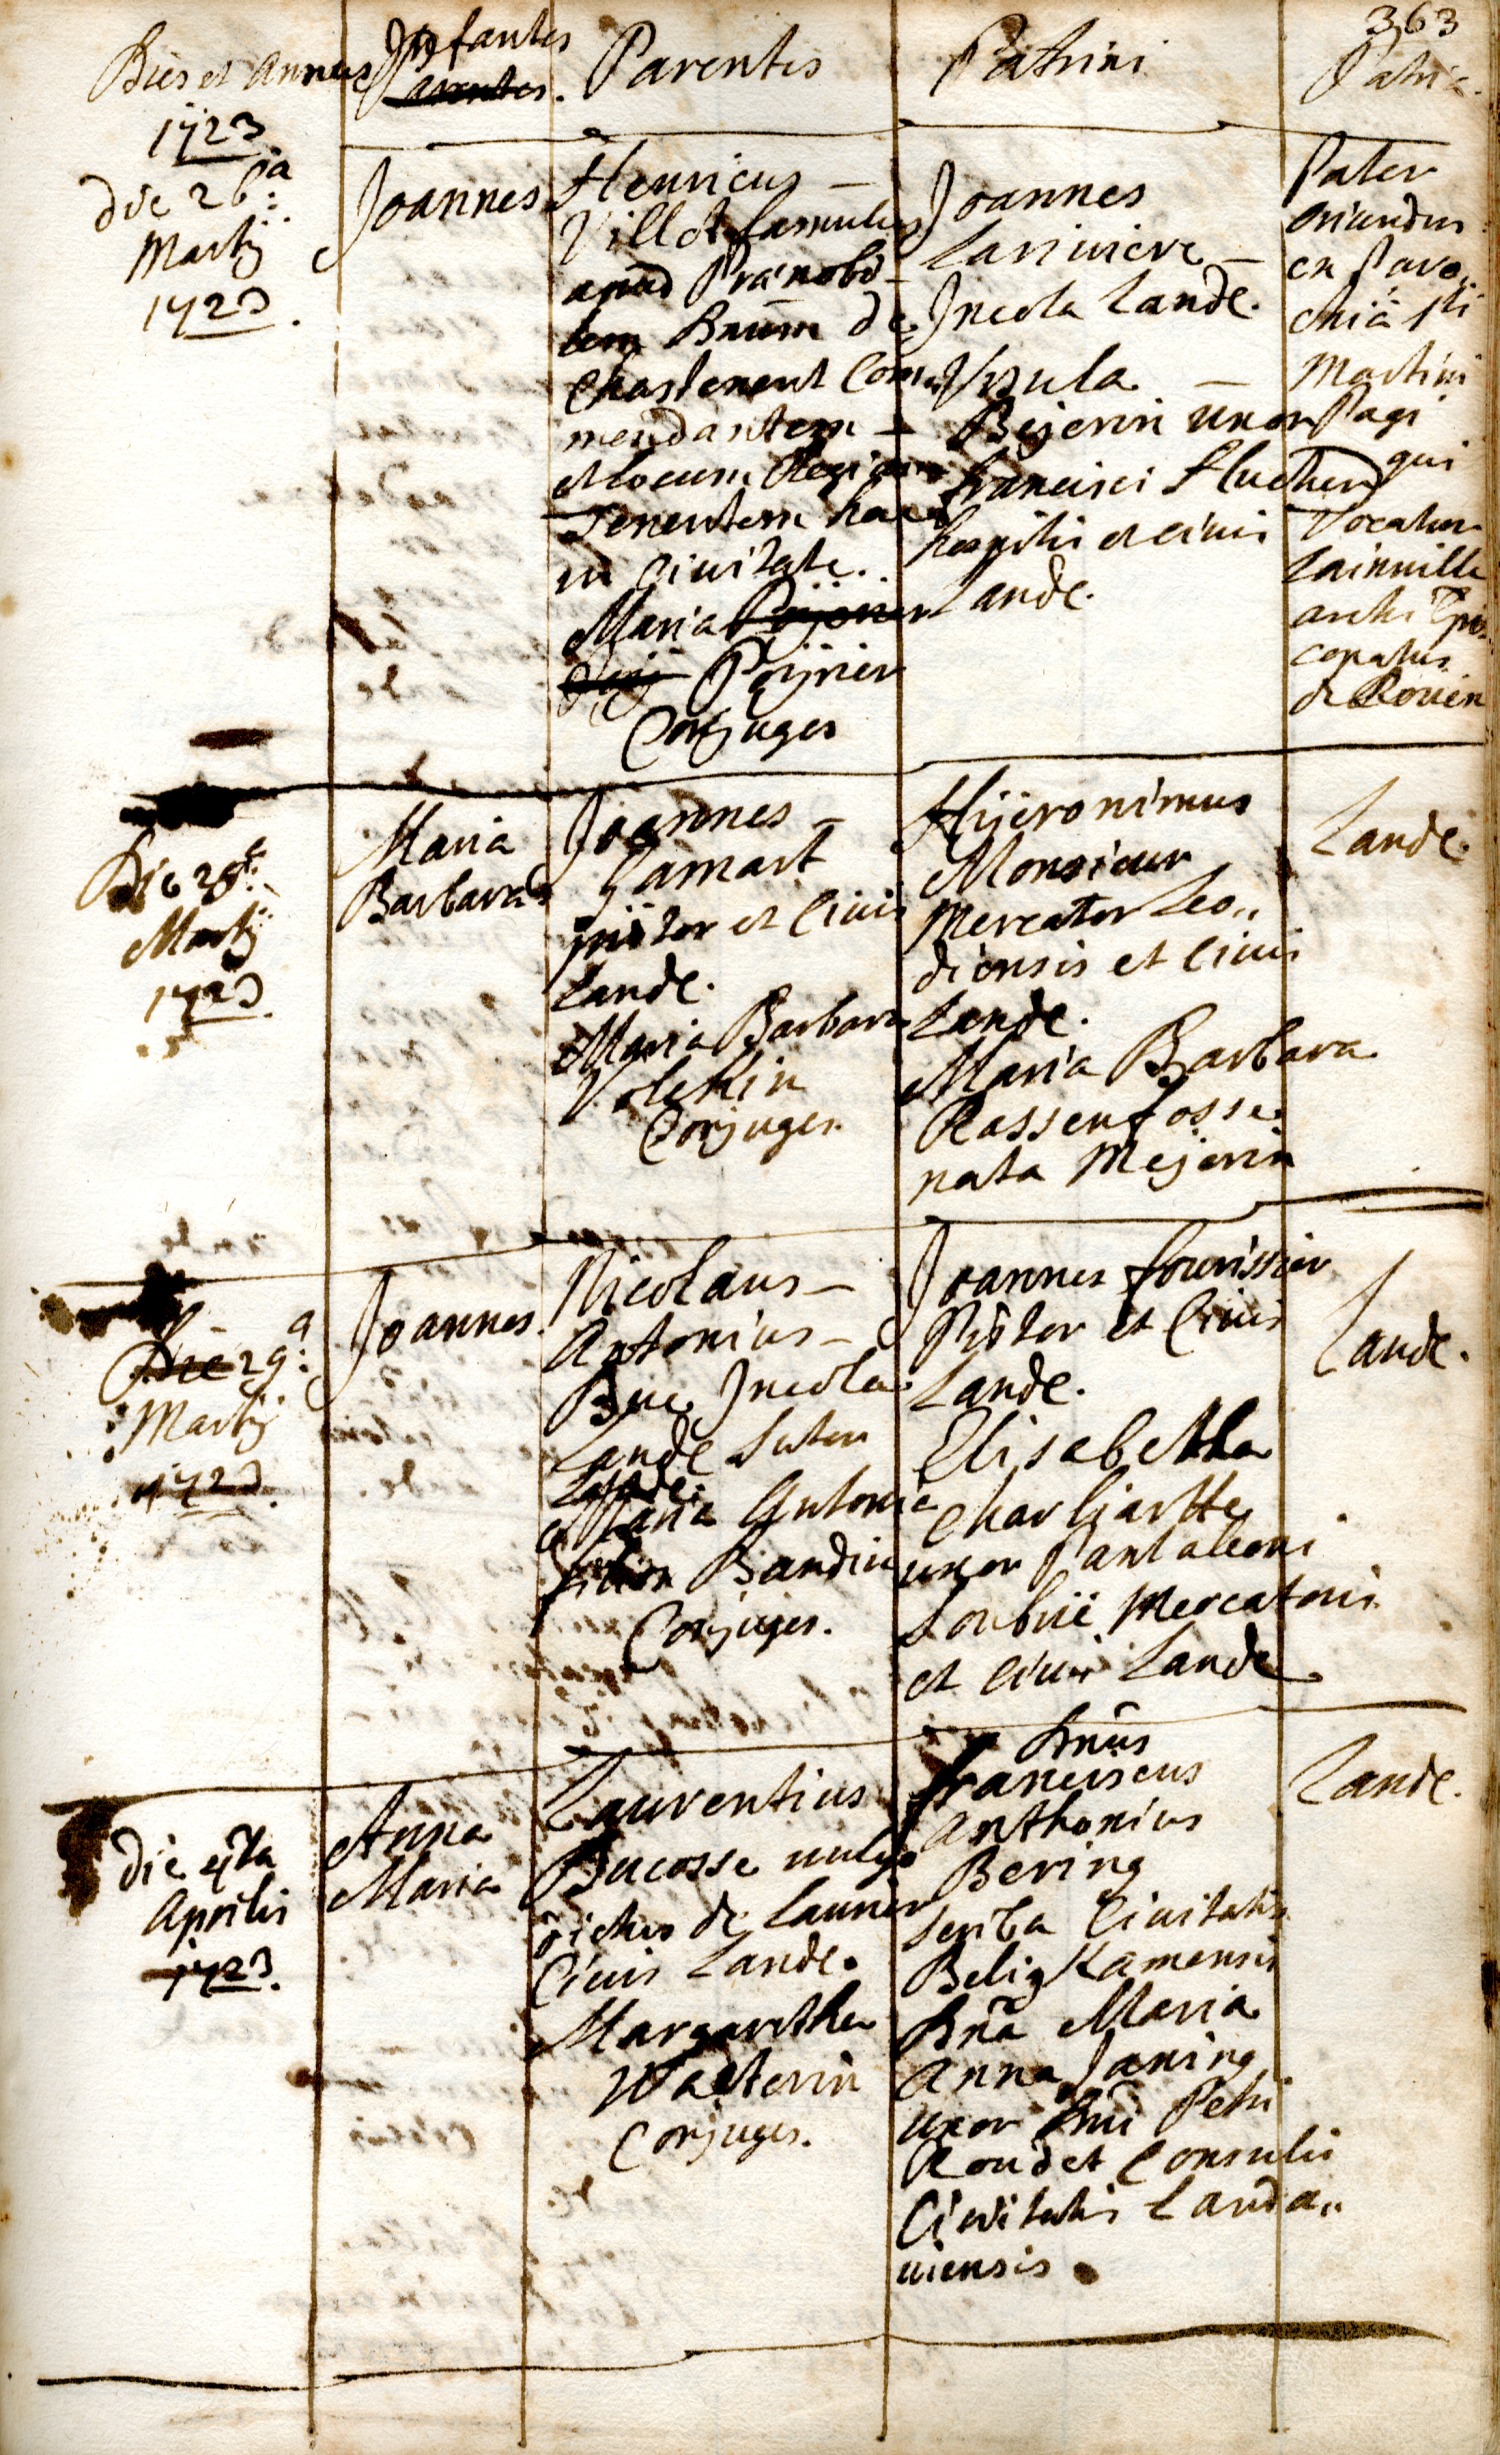 363
Dies et Annus
Infantes
Parentes
Patrini
Patria.
1723
die 26:ta
Martij
1723.
Joannes
Henricus
Villot famulus
apud Prænobi-
lem Dnum de
Chastenent Com
mendantem
et locum Regium
Tenentem hac
in Civitate.
Maria
Poijrier
Conjuges
Joannes
Lariviere
Incola Landæ.
Ursula
Beijerin uxor
Francisci Hucher
hospitis et civis
Landæ.
Pater
oriundus
ex Paro,,
chiâ Sti
Martini
Pagi
qui
vocatur
Lainville
archi Epis
copatus
de Rouen
Die 28:
Martij
1723
Maria
Barbara
Joannes
Jamart
pistor et Civis
Landæ.
Maria Barbara
Volckin
Conjuges.
Hijeronimus
Monsieur
Mercator Leo,,
diensis et Civis
Landæ.
Maria Barbara
Rassenfosse
nata Mejerin
Landæ.
Die 29:a
Martij
1723.
Joannes.
Nicolaus
Antonius
Buc Incola
Landæ Sutor
Maria Antonia
Baudin
Conjuges.
Joannes Fourissier
Pistor et Civis
Landæ.
Elisabetha
Charliartte
uxor Pantaleoni
Soubrie Mercatoris
et Civis Landæ
Landæ.
die 4ta
Aprilis
1723.
Anna
Maria
Laurentius
Bucosse vulgo
dictus de Launier
Civis Landæ.
Margaretha
Walterin
Conjuges.
Dnus
Franciscus
Anthonius
Bering
scriba Civitatis
Beligkamensis
Dna Maria
Anna Janing
uxor Dni Petri
Roudet Consulis
Civitatis Landa,,
viensis.
Landæ.